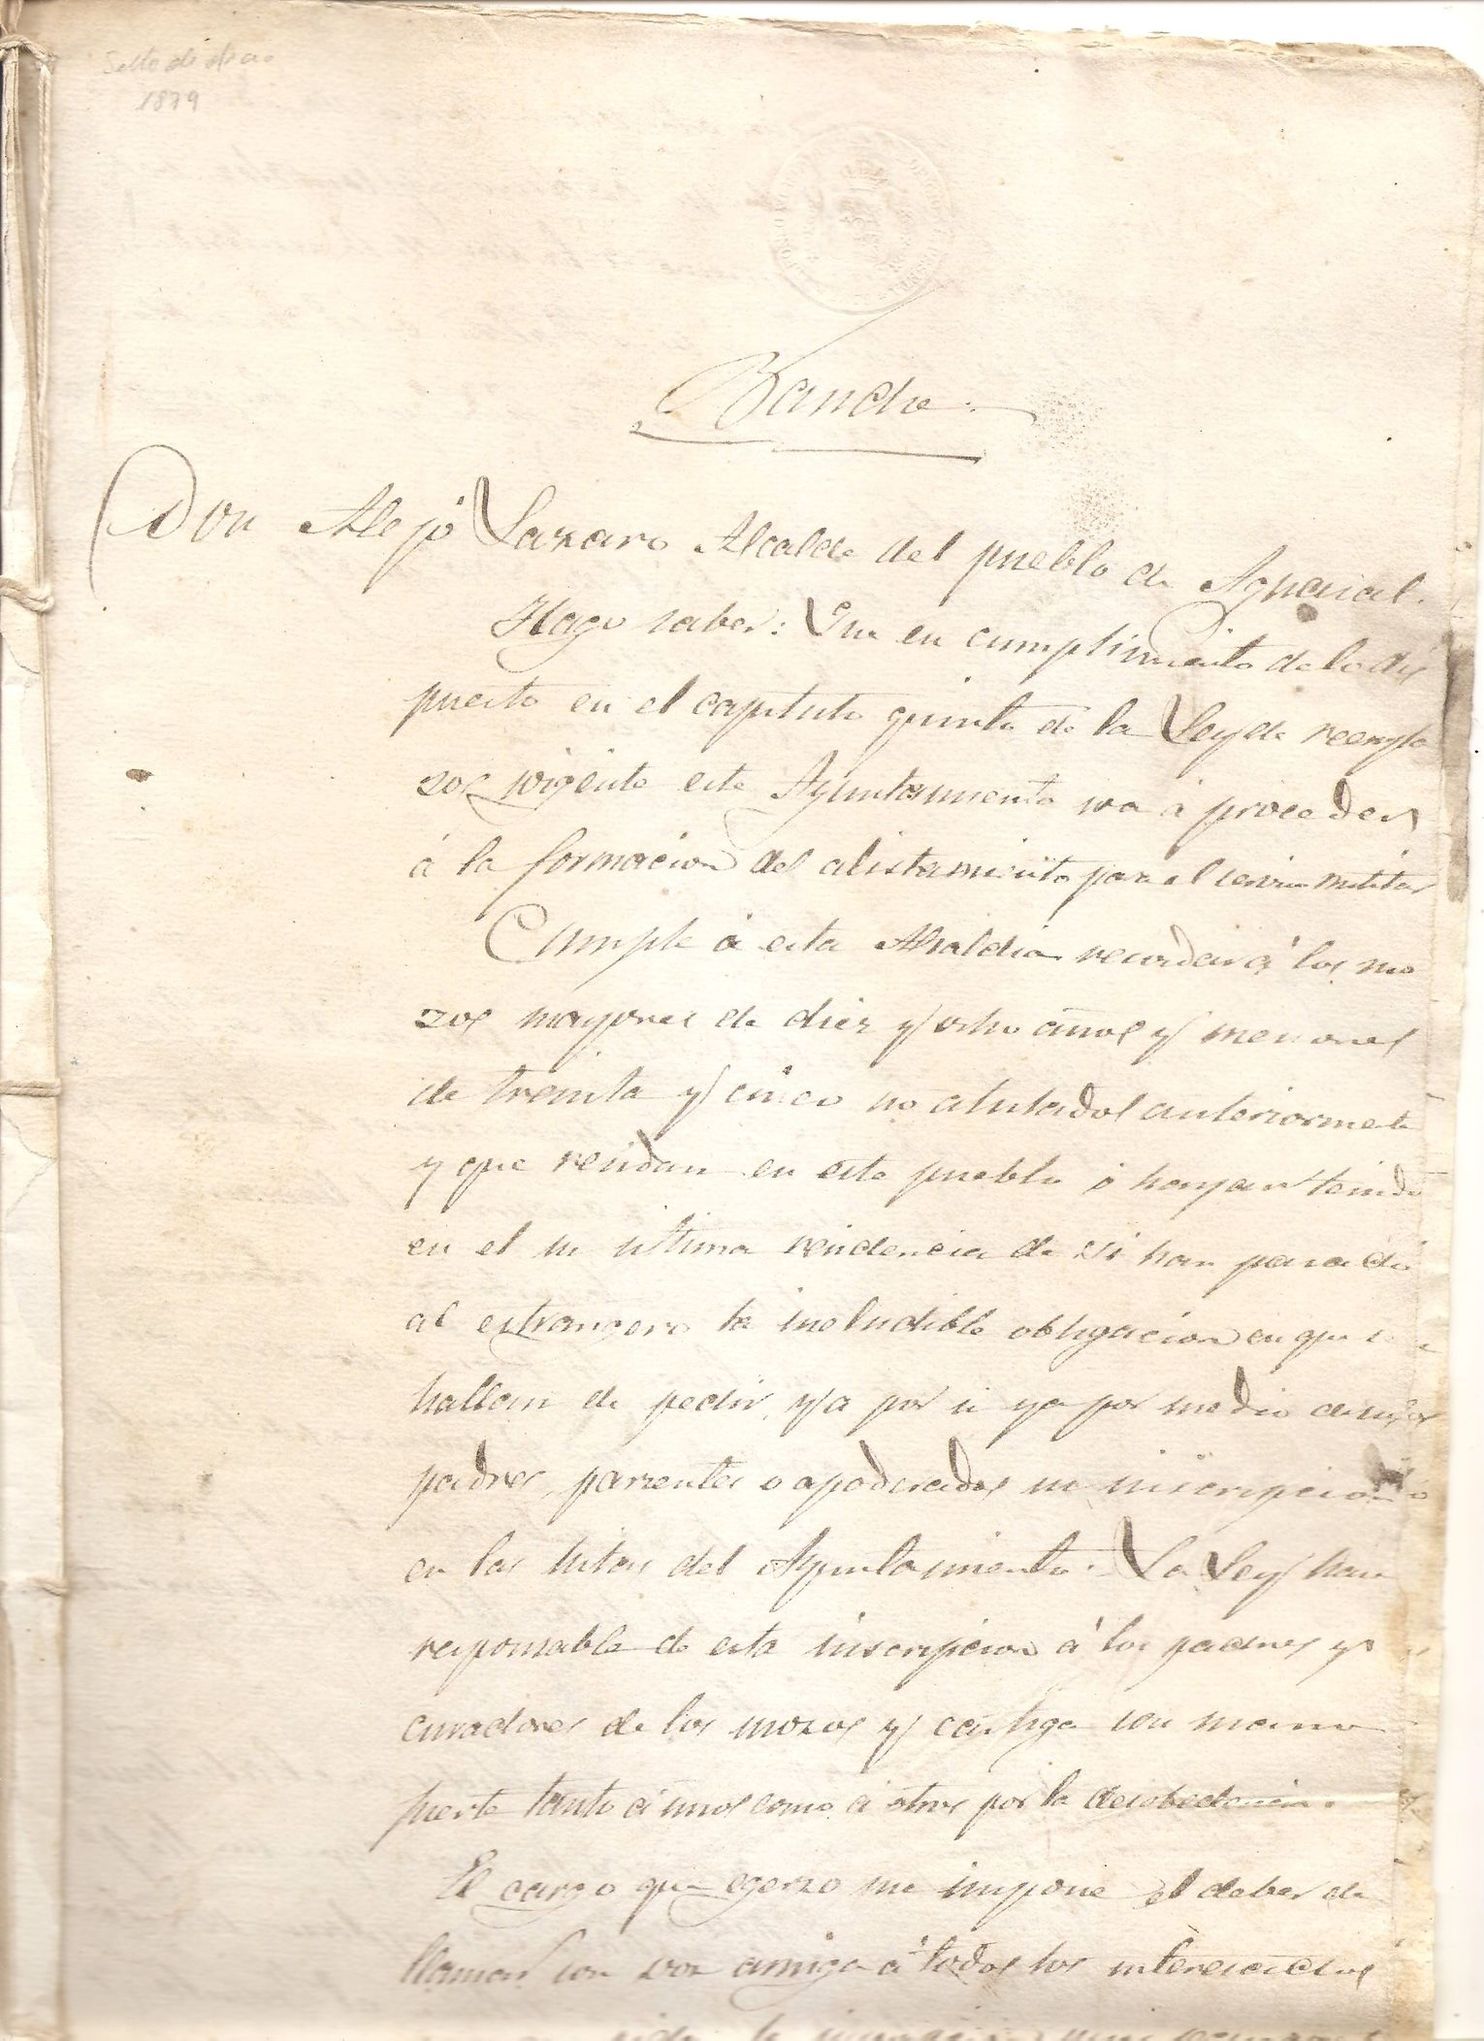 Sello de oficio
1879
Bando
Don Alejo Lazaro Alcalde del pueblo de Aguaral.
Hago saber: Que en cumplimiento de lo dis
puesto en el capitulo quinto de la Ley de reempla
zos vigente este Ayuntamiento va á proceder
á la formacion del alistamiento para el servicio militar
Cumple á esta Alcaldia recordar á los mo
zos mayores de diez y ocho años y menores
de treinta y cinco no alistados anteriormente
y que residan en este pueblo ó hayan tenido
en el su ultima residencia de si han pasado
al estrangero la ineludible obligacion en que se
hallan de pedir, ya por si ya por medio de sus
padres, parientes o apoderados su inscripcion
en las listas del Ayuntamiento. La Ley hace
responsable de esta inscripcion á los padres y
curadores de los mozos y castiga con mano
fuerte tanto á unos como á otros por la desobediencia.
El cargo que egerzo me impone el deber de
llamar con voz amiga á todos los interesados